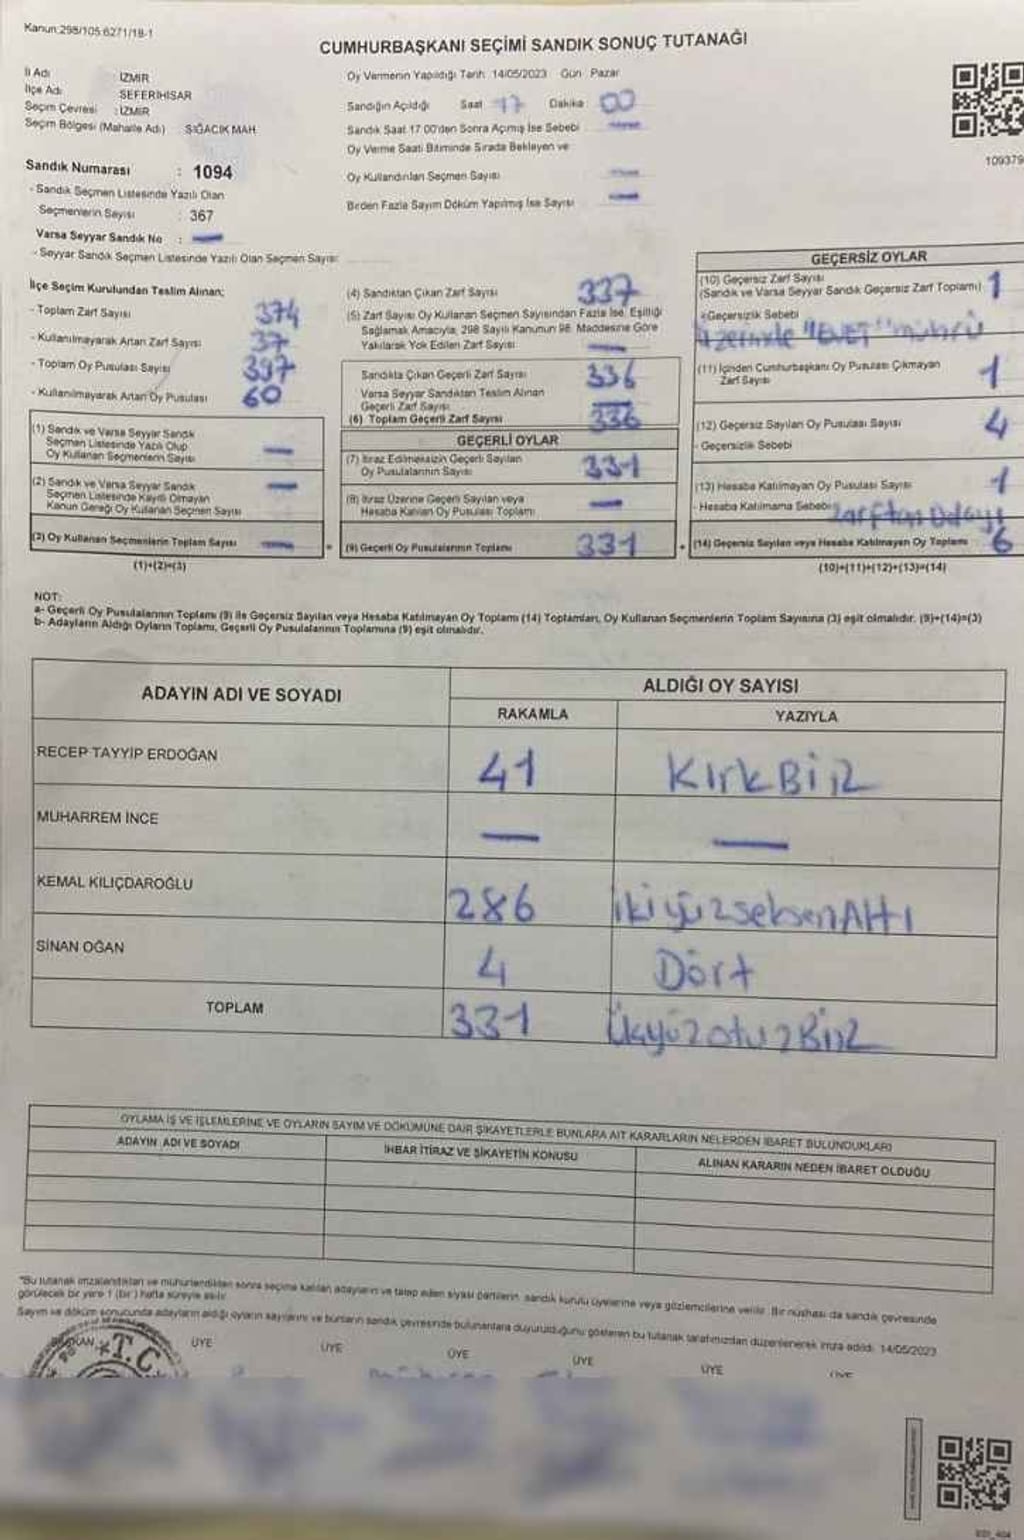 Kanun:298/105.6271/18-1
CUMHURBAŞKANI SEÇİMİ SANDIK SONUÇ TUTANAĞI
İl Adı İZMİR
İlçe Adı SEFERİHİSAR
Seçim Çevresi : İZMİR
Seçim Bölgesi (Mahalle Adı) SIĞACIK MAH.
Sandık Numarası : 1094
- Sandık Seçmen Listesinde Yazılı Olan
Seçmenlerin Sayısı : 367
Varsa Seyyar Sandık No : —
- Seyyar Sandık Seçmen Listesinde Yazılı Olan Seçmen Sayısı:
Oy Vermenin Yapıldığı Tarih: 14/05/2023 Gün Pazar
Sandığın Açıldığı Saat 17 Dakika : 00
Sandık Saat 17 00'den Sonra Açımış İse Sebebi —
Oy Verme Saati Bitiminde Sırada Bekleyen ve
Oy Kullandırılan Seçmen Sayısı —
Birden Fazla Sayım Döküm Yapılmış İse Sayısı —
109379
İlçe Seçim Kurulundan Teslim Alınan;
- Toplam Zarf Sayısı 374
- Kullanılmayarak Artan Zarf Sayısı 37
- Toplam Oy Pusulası Sayısı 397
- Kullanılmayarak Artan Oy Pusulası 60
(1) Sandık ve Varsa Seyyar Sandık
Seçmen Listesinde Yazılı Olup
Oy Kullanan Seçmenlerin Sayısı —
(2) Sandık ve Varsa Seyyar Sandık
Seçmen Listesinde Kayıtlı Olmayan
Kanun Gereği Oy Kullanan Seçmen Sayısı —
(3) Oy Kullanan Seçmenlerin Toplam Sayısı —
(1)+(2)=(3)
(4) Sandıktan Çıkan Zarf Sayısı 337
(5) Zarf Sayısı Oy Kullanan Seçmen Sayısından Fazla İse, Eşitliği
Sağlamak Amacıyla, 298 Sayılı Kanunun 98. Maddesine Göre
Yakılarak Yok Edilen Zarf Sayısı —
Sandıkta Çıkan Geçerli Zarf Sayısı 336
Varsa Seyyar Sandıktan Teslim Alınan
Geçerli Zarf Sayısı —
(6) Toplam Geçerli Zarf Sayısı 336
GEÇERLİ OYLAR
(7) İtiraz Edilmeksizin Geçerli Sayılan
Oy Pusulalarının Sayısı 331
(8) İtiraz Üzerine Geçerli Sayılan veya
Hesaba Katılan Oy Pusulası Toplamı —
= (9) Geçerli Oy Pusulalarının Toplamı 331
GEÇERSİZ OYLAR
(10) Geçersiz Zarf Sayısı
(Sandık ve Varsa Seyyar Sandık Geçersiz Zarf Toplamı) 1
- Geçersizlik Sebebi
üzerinde "EVET" mührü
(11) İçinden Cumhurbaşkanı Oy Pusulası Çıkmayan
Zarf Sayısı 1
(12) Geçersiz Sayılan Oy Pusulası Sayısı 4
- Geçersizlik Sebebi
(13) Hesaba Katılmayan Oy Pusulası Sayısı 1
- Hesaba Katılmama Sebebi Zarftan Dolayı
+ (14) Geçersiz Sayılan veya Hesaba Katılmayan Oy Toplamı 6
(10)+(11)+(12)+(13)=(14)
NOT:
a- Geçerli Oy Pusulalarının Toplamı (9) ile Geçersiz Sayılan veya Hesaba Katılmayan Oy Toplamı (14) Toplamları, Oy Kullanan Seçmenlerin Toplam Sayısına (3) eşit olmalıdır. (9)+(14)=(3)
b- Adayların Aldığı Oyların Toplamı, Geçerli Oy Pusulalarının Toplamına (9) eşit olmalıdır.
ADAYIN ADI VE SOYADI ALDIĞI OY SAYISI
RAKAMLA YAZIYLA
RECEP TAYYİP ERDOĞAN 41 KırkBİR
MUHARREM İNCE — —
KEMAL KILIÇDAROĞLU 286 ikiyüzseksenAltı
SİNAN OĞAN 4 Dört
TOPLAM 331 ÜçyüzotuzBİR
OYLAMA İŞ VE İŞLEMLERİNE VE OYLARIN SAYIM VE DÖKÜMÜNE DAİR ŞİKAYETLERLE BUNLARA AİT KARARLARIN NELERDEN İBARET BULUNDUKLARI
ADAYIN ADI VE SOYADI İHBAR İTİRAZ VE ŞİKAYETİN KONUSU ALINAN KARARIN NEDEN İBARET OLDUĞU
*Bu tutanak imzalandıktan ve mühürlendikten sonra seçime katılan adayların ve talep eden siyasi partilerin sandık kurulu üyelerine veya gözlemcilerine verilir. Bir nüshası da sandık çevresinde
görülecek bir yere 1 (bir) hafta süreyle asılır.
Sayım ve döküm sonucunda adayların aldığı oyların sayılarını ve bunların sandık çevresinde bulunanlara duyurulduğunu gösteren bu tutanak tarafımızdan düzenlenerek imza edildi. 14/05/2023
ÜYE ÜYE ÜYE ÜYE ÜYE
T.C.